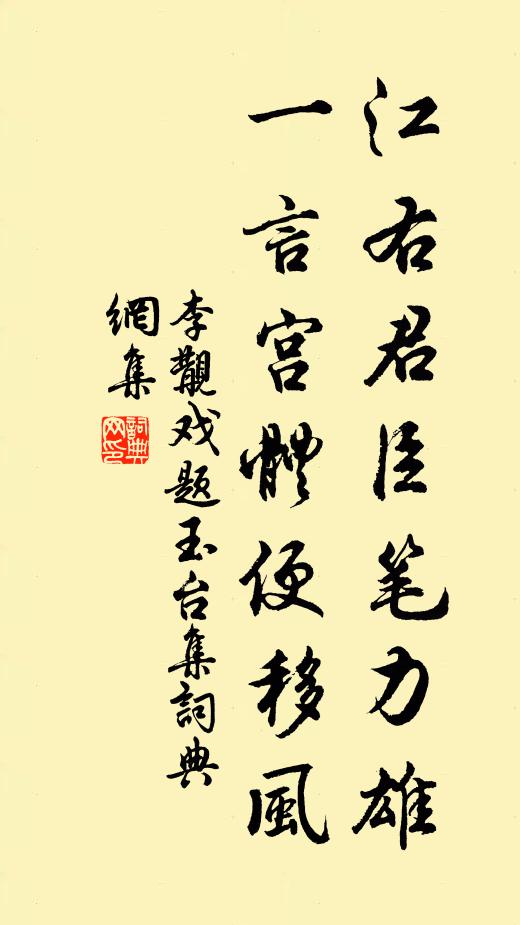 江右君臣笔力雄
一言宫體便移風
李觏戏题玉台集詞典
網集
詞典
网印